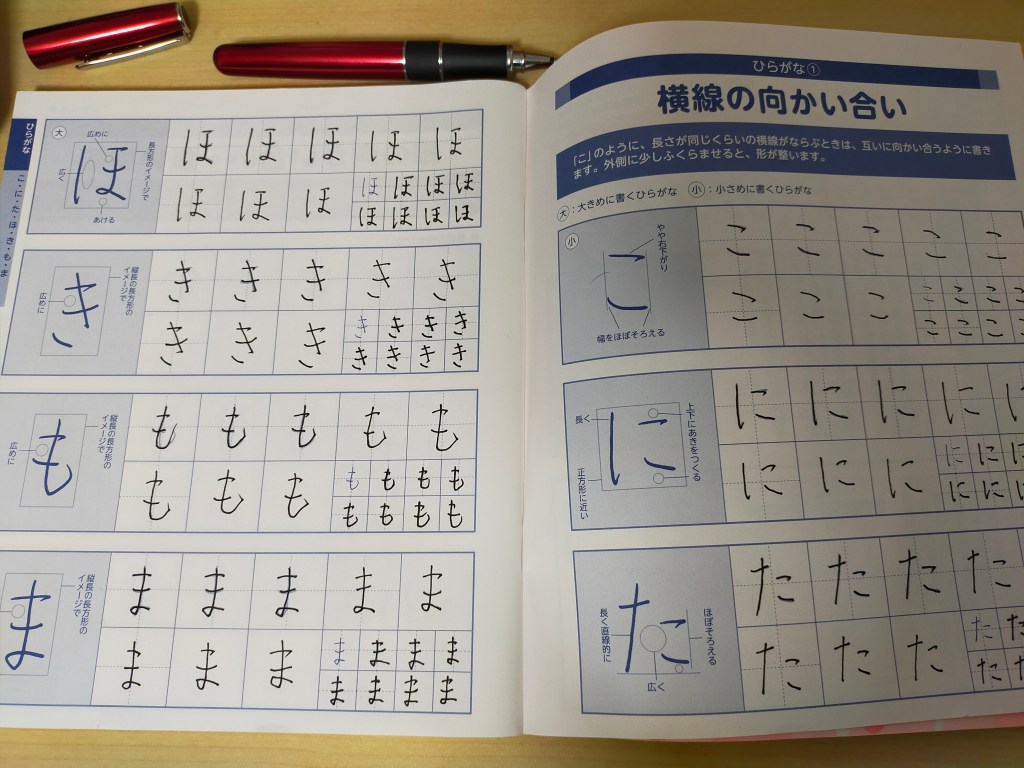 ひらがな①
横線の向かい合い
「こ」のように、長さが同じくらいの横線がならぶときは、互いに向かい合うように書き
ます。外側に少しふくらませると、形が整います。
大：大きめに書くひらがな　小：小さめに書くひらがな
小
こ
やや右下がり
幅をほぼそろえる
こ こ こ こ こ
こ こ こ こ こ こ こ
こ こ こ こ
に
長く
正方形に近い
上下にあきをつくる
に に に に に
に に に に に に
に に に
た
長く直線的に
ほぼそろえる
広く
た た た た
た た た た た
た た
ひらがな
こ・に・た・ほ・き・も・ま
大
ほ
広めに
広く
あける
長方形のイメージで
ほ ほ ほ ほ ほ
ほ ほ ほ ほ ほ ほ ほ
ほ ほ ほ ほ
き
広めに
縦長の長方形の
イメージで
き き き き き
き き き き き き き
き き き き
も
広めに
縦長の長方形の
イメージで
も も も も も
も も も も も も も
も も も も
ま
縦長の長方形の
イメージで
ま ま ま ま ま
ま ま ま ま ま ま ま
ま ま ま ま